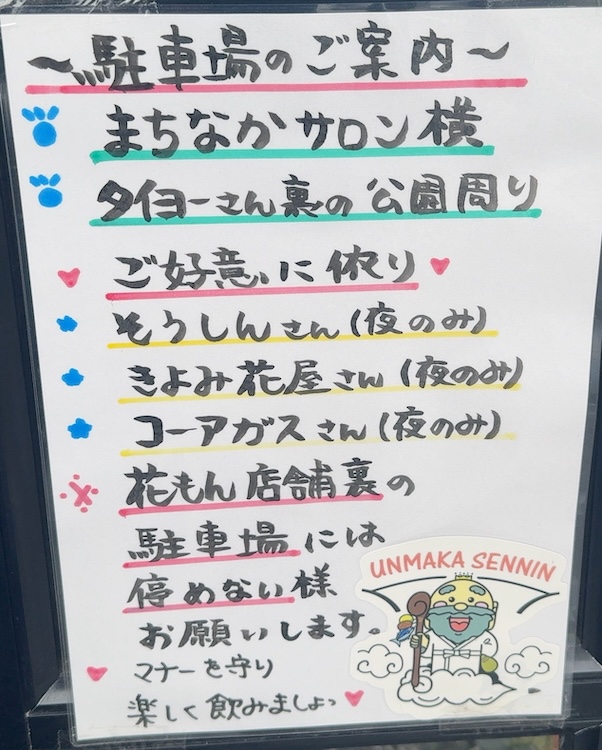 〜駐車場のご案内〜
まちなかサロン横
タイヨーさん裏の公園周り
ご好意に依り
そうしんさん(夜のみ)
きよみ花屋さん(夜のみ)
コーアガスさん(夜のみ)
花もん店舗裏の
駐車場には
停めない様
お願いします。
マナーを守り
楽しく飲みましょっ
UNMAKA SENNIN